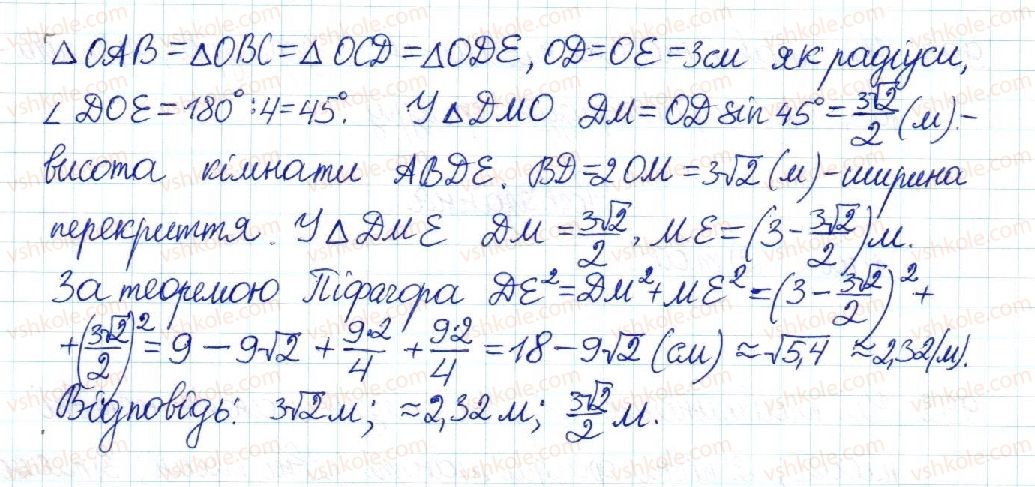 △OAB=△OBC=△OCD=△ODE, OD=OE=3см як радіуси,
∠DOE=180°:4=45°. У △DMO DM=OD sin 45°=3√2/2 (м)-
висота кімнати ABDE. BD=2OM=3√2(м)-ширина
перекриття. У △DME DM=3√2/2, ME=(3-3√2/2)м.
За теоремою Піфагора DE²=DM²+ME²=(3-3√2/2)²+
+(3√2/2)²=9-9√2+9·2/4+9·2/4=18-9√2(см)≈√5,4≈2,32(м).
Відповідь: 3√2м; ≈2,32м; 3√2/2 м.